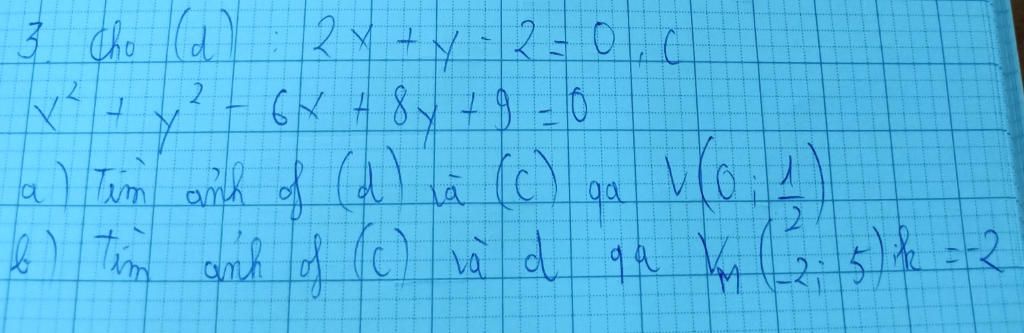 3. Cho (d) : 2x + y - 2 = 0, C
x² + y² - 6x + 8y + 9 = 0
a) Tìm ảnh of (d) và (C) qa V(0; 1/2)
b) Tìm ảnh of (C) và d qa V_M (-2; 5) ; k = -2